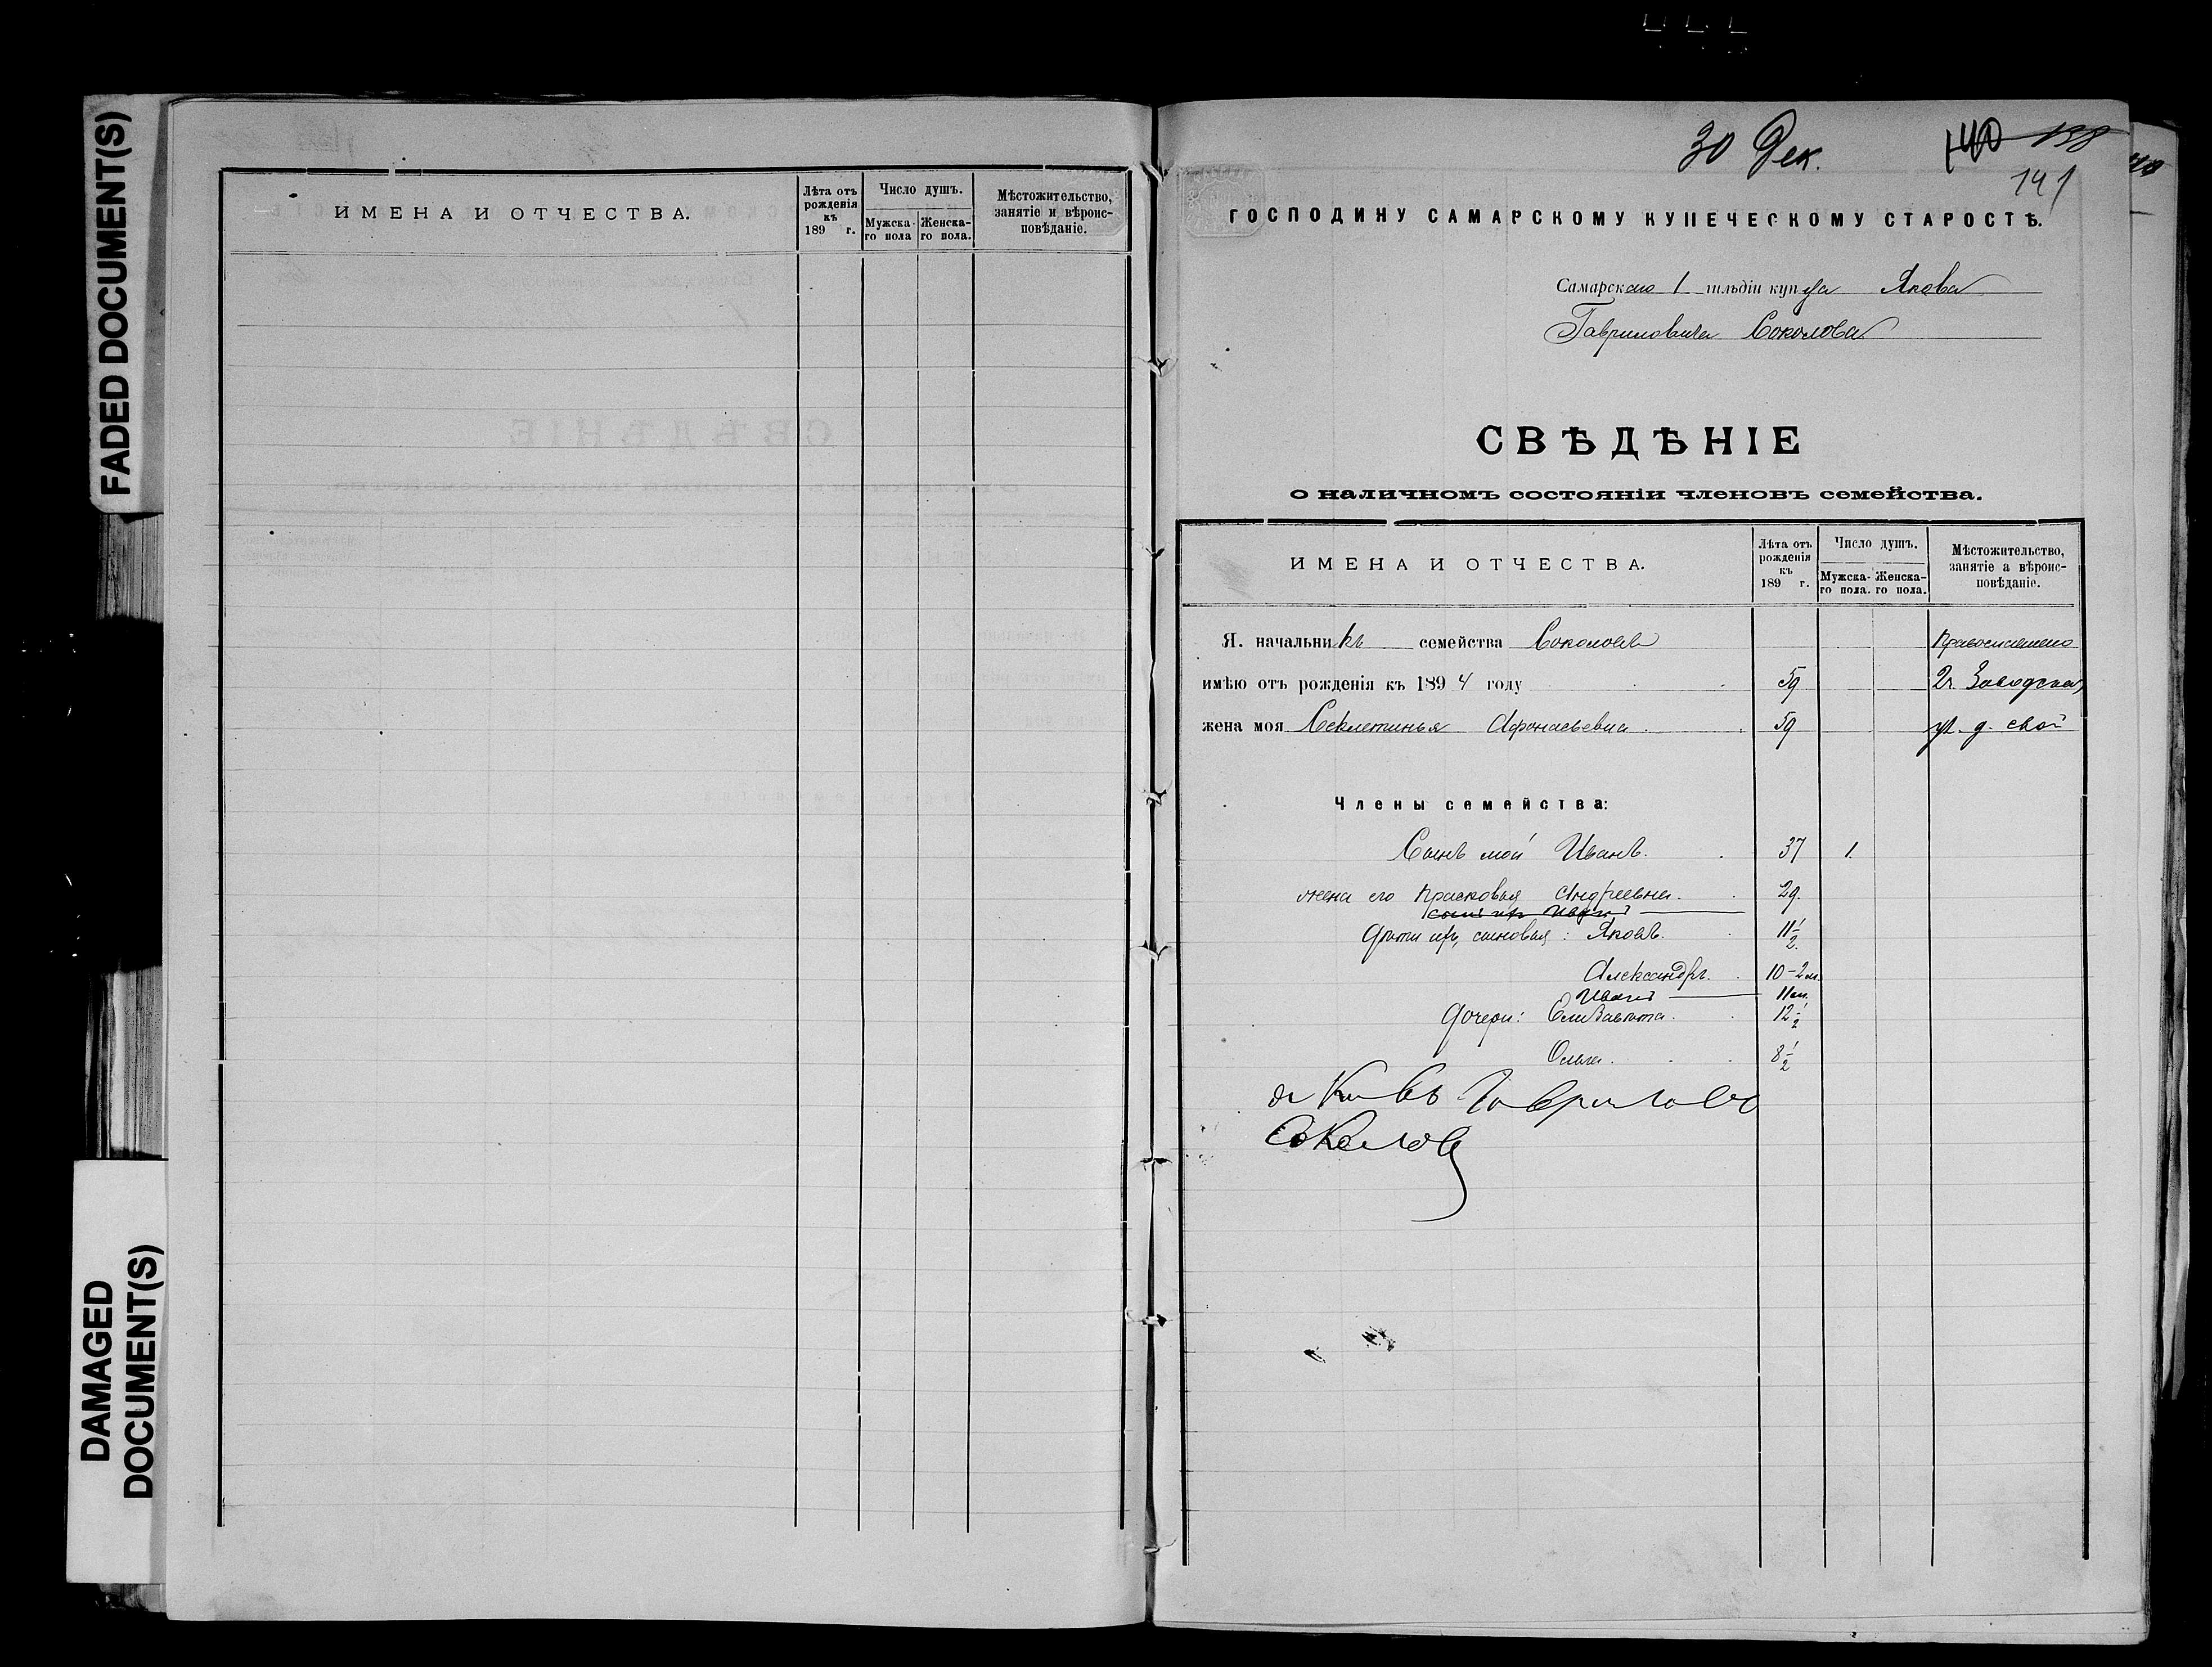 FADED DOCUMENT(S)
DAMAGED
DOCUMENT(S)
ИМЕНА И ОТЧЕСТВА.
Лѣта отъ рожденія къ 189 г.
Число душъ.
Мужска-го пола
Женска-го пола.
Мѣстожительство, занятіе и вѣроис-повѣданіе.
30 Дек.
140 138
141
ГОСПОДИНУ САМАРСКОМУ КУПЕЧЕСКОМУ СТАРОСТѢ.
Самарскаго 1 гильдіи купца Якова
Гавриловича Соколова
СВѢДѢНІЕ
о наличномъ состояніи членовъ семейства.
ИМЕНА И ОТЧЕСТВА.
Лѣта отъ рожденія къ 189 г.
Число душъ.
Мужска-го пола.
Женска-го пола.
Мѣстожительство, занятіе а вѣроис-повѣданіе.
Я. начальникъ семейства Соколовъ
имѣю отъ рожденія къ 1894 году 59 2 ч. Заводская
жена моя Секлетинья Афонасьевна 59 ул. д. свой
Члены семейства:
Сынъ мой Иванъ. 37 1.
жена его Прасковья Андреевна. 29.
сынъ ихъ Иванъ
Дѣти ихъ, сыновья: Яковъ. 11 1/2.
Александръ. 10-2 м.
Иванъ 11 м.
Дочери: Елизавѣта. 12 1/2
Ольга. 8 1/2
Яковъ Гавриловъ
Соколовъ